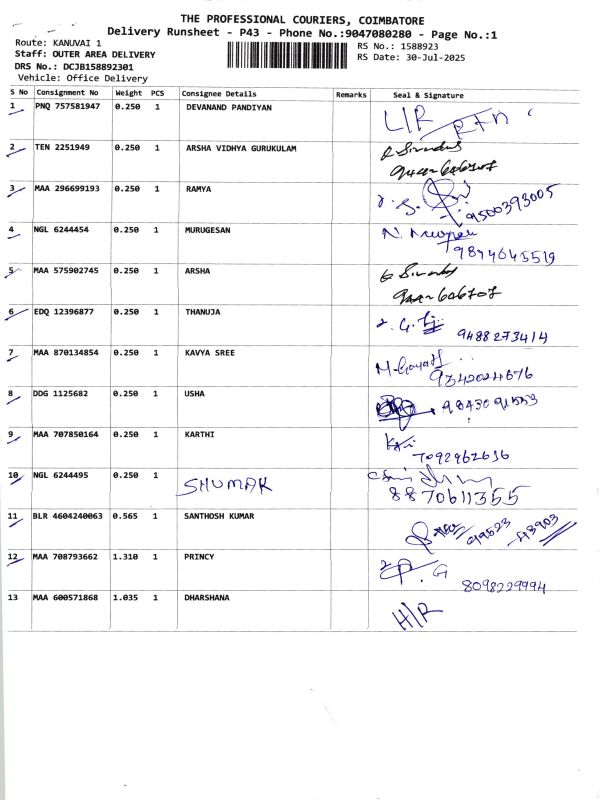 THE PROFESSIONAL COURIERS, COIMBATORE
Delivery Runsheet - P43 - Phone No.:9047080280 - Page No.:1
Route: KANUVAI 1
RS No.: 1588923
Staff: OUTER AREA DELIVERY
RS Date: 30-Jul-2025
DRS No.: DCJB158892301
Vehicle: Office Delivery
S No Consignment No Weight PCS Consignee Details Remarks Seal & Signature
1 PNQ 757581947 0.250 1 DEVANAND PANDIYAN L/R RTN
2 TEN 2251949 0.250 1 ARSHA VIDHYA GURUKULAM
3 MAA 296699193 0.250 1 RAMYA
9500393005
4 NGL 6244454 0.250 1 MURUGESAN
9894645519
5 MAA 575902745 0.250 1 ARSHA
6 EDQ 12396877 0.250 1 THANUJA
9488273414
7 MAA 870134854 0.250 1 KAVYA SREE
8 DDG 1125682 0.250 1 USHA
9 MAA 707850164 0.250 1 KARTHI
10 NGL 6244495 0.250 1 SHUMAR
8870611355
11 BLR 4604240063 0.565 1 SANTHOSH KUMAR
12 MAA 708793662 1.310 1 PRINCY
8098229994
13 MAA 600571868 1.035 1 DHARSHANA H/R